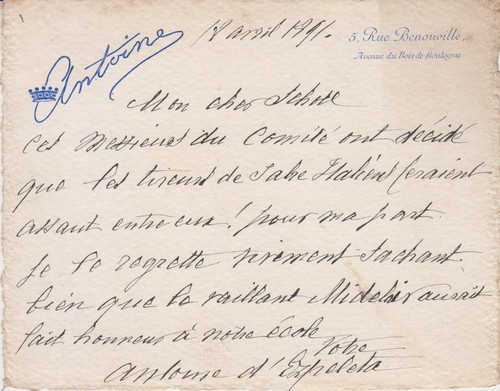 Antoine
18 avril 1891.
5. Rue Benouville,
Avenue du Bois de Boulogne
Mon cher Scholl
Ces Messieurs du Comité ont décidé
que les tireurs de Sabre Italiens feraient
assaut entre eux! pour ma part
je le regrette vivement sachant
bien que le vaillant aurait
fait honneur à notre école
Votre
Antoine d'Ezpeleta